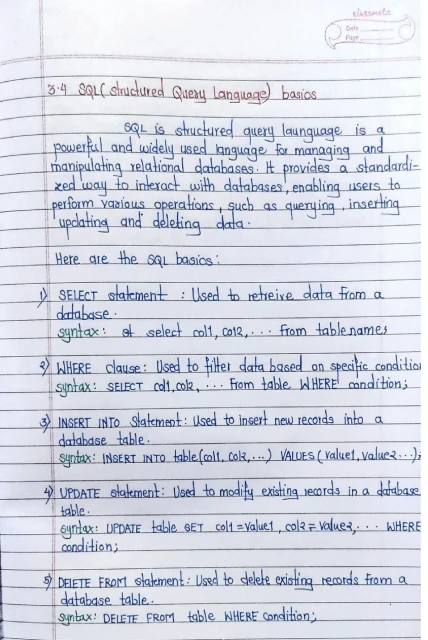 classmate
Date
Page
3.4 SQL( structured Query Language) basics
SQL is structured query launguage is a
powerful and widely used language for managing and
manipulating relational databases. It provides a standardi-
zed way to interact with databases, enabling users to
perform various operations, such as querying, inserting
updating and deleting data.
Here are the SQL basics:
1) SELECT statement : Used to retreive data from a
database.
syntax: select col1, col2, ... from table names
2) WHERE clause: Used to filter data based on specific condition
syntax: SELECT col1, col2, ... From table WHERE condition;
3) INSERT INTO Statement: Used to insert new records into a
database table.
syntax: INSERT INTO table(col1, col2, ...) VALUES (value1, value2 ...);
4) UPDATE statement: Used to modify existing records in a database
table.
syntax: UPDATE table SET col1 = value1, col2 = value2, ... WHERE
condition;
5) DELETE FROM statement: Used to delete existing records from a
database table..
syntax: DELETE FROM table WHERE condition;